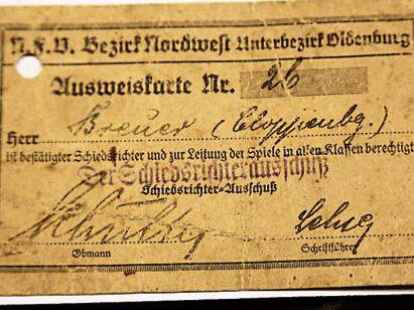 N.F.V. Bezirk Nordwest Unterbezirk Oldenburg
Ausweiskarte Nr. 26
Herr Breuer (Cloppenbg.)
ist bestätigter Schiedsrichter und zur Leitung der Spiele in allen Klassen berechtigt
Der Schiedsrichterausschuß
Schiedsrichter-Ausschuß
Obmann Schriftführer